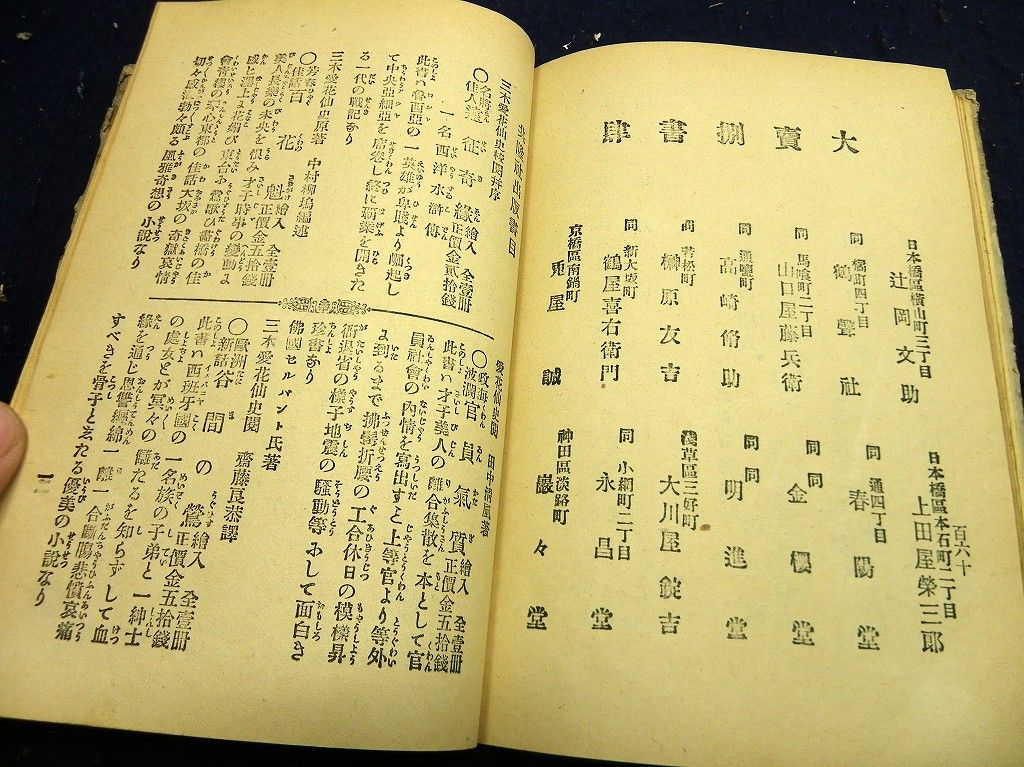 大賣捌書肆
百六十
日本橋區橫山町三丁目
辻岡文助
同 橘町四丁目
鶴聲社
同 馬喰町二丁目
山口屋藤兵衛
同 通鹽町
高崎脩助
同 若松町
榊原友吉
同 新大坂町
鶴屋喜右衛門
京橋區南鍋町
兎屋誠
日本橋區本石町二丁目
上田屋榮三郎
同 通四丁目
春陽堂
同 同
金櫻堂
同 同
明進堂
淺草區三好町
大川屋錠吉
同 小網町二丁目
永昌堂
神田區淡路町
巖々堂
出版書目
三木愛花仙史校閱幷序
〇名將佳人遠征奇緣 繪入 全壹冊 正價金貳拾錢
一名西洋水滸傳
此書ハ魯西亞の一英雄が卑賤より崛起し
て中央亞細亞を席卷し終に覇業を開きた
る一代の戰記なり
三木愛花仙史原著 中村柳塢編述
〇芳春佳話百花魁 繪入 全壹冊 正價金五拾錢
美人長樂の未央を恨み才子時事の變動よ
感じ
東台に鶯歌ひ
會青樓の
心東都の佳話大坂の奇獄哀情
切々感慨勃々頗る風雅奇想の小說なり
愛花仙史閱 田中
著
〇政海波瀾官員氣質 繪入 全壹冊 正價金五拾錢
此書ハ才子美人の離合集散を本として官
員社會の內情を寫出すと上等官より等外
よ到るまで拂鬚折腰の工合休日の模樣昇
衙退省の樣子地震の騷動等にして面白き
珍書なり
佛國セルバント氏著
三木愛花仙史閱 齋藤良恭譯
〇歐洲新話谷間の鶯 繪入 全壹冊 正價金五拾錢
此書ハ西班牙國の一名族の子弟と一紳士
の處女とが冥々の讎たるを知らずして血
緣を通じ恩讐纏綿一離一合斷膓悲憤哀痛
すべきを骨子と爲たる優美の小說なり
一